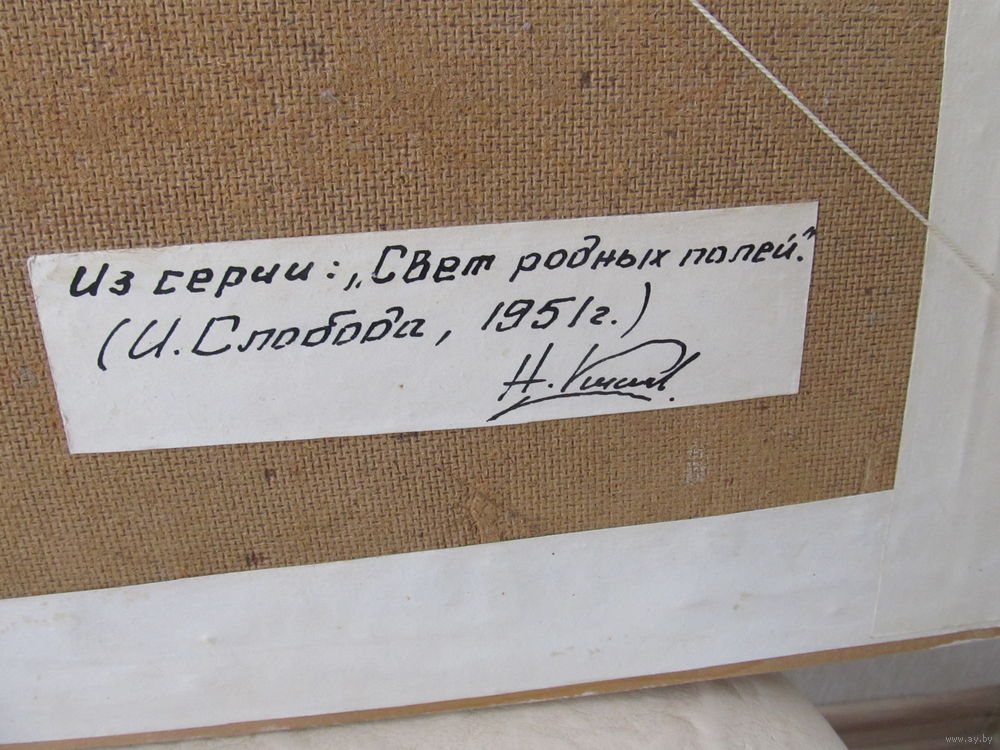 Из серии: „Свет родных полей."
(И. Слобода, 1951г.)
Н.
www.ay.by